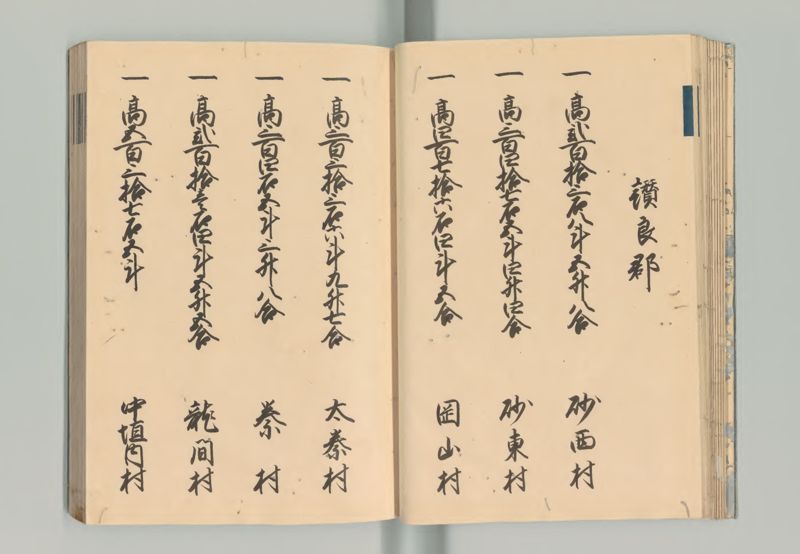 讃良郡
一 高弐百拾三石八斗五升八合 砂西村
一 高三百四拾七石五斗四升四合 砂東村
一 高四百七拾六石四斗五合 岡山村
一 高三百三拾三石六斗九升七合 太秦村
一 高三百四石五斗三升八合 秦村
一 高弐百拾壱石四斗五升五合 龍間村
一 高五百三拾七石五斗 中垣内村